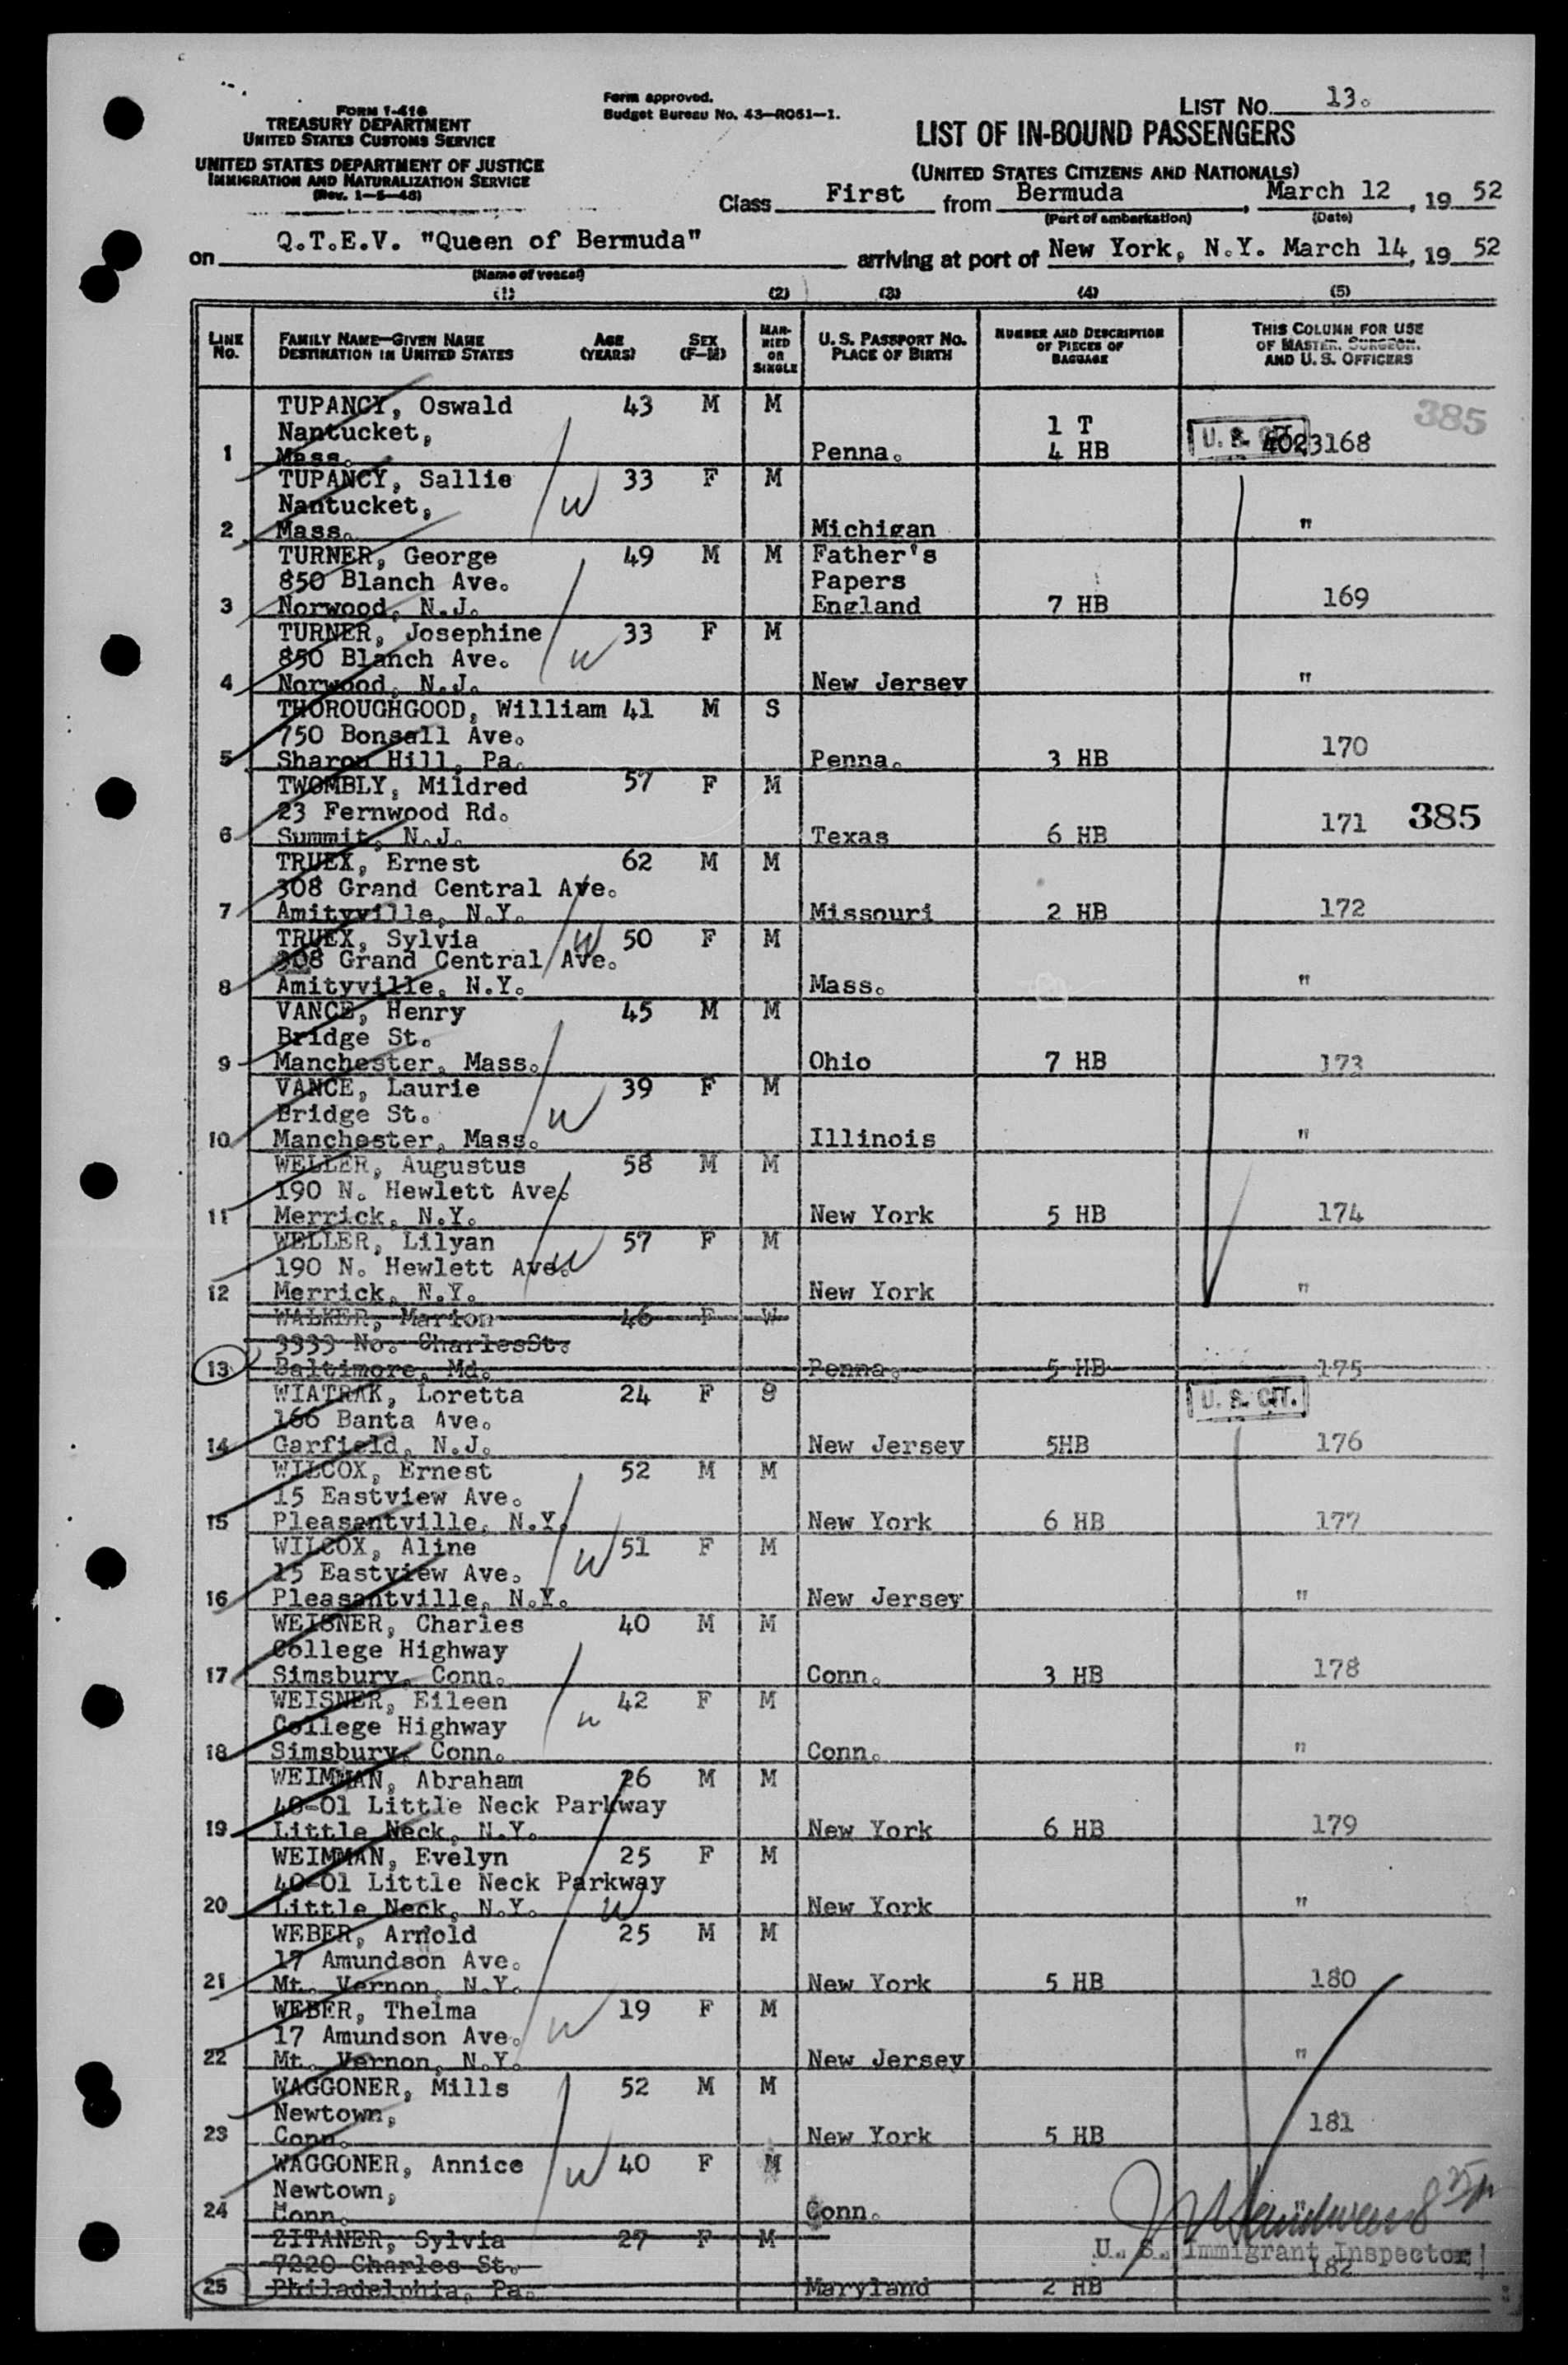 FORM I-416
TREASURY DEPARTMENT
UNITED STATES CUSTOMS SERVICE
UNITED STATES DEPARTMENT OF JUSTICE
IMMIGRATION AND NATURALIZATION SERVICE
(Rev. 1-5-48)
Form approved.
Budget Bureau No. 43-R051-1.
LIST NO. 13.
LIST OF IN-BOUND PASSENGERS
(UNITED STATES CITIZENS AND NATIONALS)
Class First from Bermuda, March 12, 19 52
(Port of embarkation) (Date)
on Q.T.E.V. "Queen of Bermuda" arriving at port of New York, N.Y. March 14, 19 52
(Name of vessel)
(1) (2) (3) (4) (5)
LINE No. FAMILY NAME—GIVEN NAME DESTINATION IN UNITED STATES AGE (YEARS) SEX (F-M) MARRIED OR SINGLE U. S. PASSPORT No. PLACE OF BIRTH NUMBER AND DESCRIPTION OF PIECES OF BAGGAGE THIS COLUMN FOR USE OF MASTER, SURGEON, AND U. S. OFFICERS
TUPANCY, Oswald 43 M M 385
Nantucket, 1 T
1 Mass. Penna. 4 HB U. S. CIT. 4023168
TUPANCY, Sallie 33 F M
Nantucket, W
2 Mass. Michigan "
TURNER, George 49 M M Father's
850 Blanch Ave. Papers
3 Norwood, N.J. England 7 HB 169
TURNER, Josephine 33 F M
850 Blanch Ave. W
4 Norwood, N.J. New Jersey "
THOROUGHGOOD, William 41 M S
750 Bonsall Ave.
5 Sharon Hill, Pa. Penna. 3 HB 170
TWOMBLY, Mildred 57 F M
23 Fernwood Rd.
6 Summit, N.J. Texas 6 HB 171 385
TRUEX, Ernest 62 M M
308 Grand Central Ave.
7 Amityville, N.Y. Missouri 2 HB 172
TRUEX, Sylvia W 50 F M
308 Grand Central Ave.
8 Amityville, N.Y. Mass. "
VANCE, Henry 45 M M
Bridge St.
9 Manchester, Mass. Ohio 7 HB 173
VANCE, Laurie 39 F M
Bridge St. W
10 Manchester, Mass. Illinois "
WELLER, Augustus 58 M M
190 N. Hewlett Ave.
11 Merrick, N.Y. New York 5 HB 174
WELLER, Lilyan 57 F M
190 N. Hewlett Ave. W
12 Merrick, N.Y. New York "
WALKER, Marion 46 F W
3333 No. CharlesSt.
13 Baltimore, Md. Penna. 5 HB 175
WIATRAK, Loretta 24 F S U. S. CIT.
166 Banta Ave.
14 Garfield, N.J. New Jersey 5HB 176
WILCOX, Ernest 52 M M
15 Eastview Ave.
15 Pleasantville, N.Y. New York 6 HB 177
WILCOX, Aline W 51 F M
15 Eastview Ave.
16 Pleasantville, N.Y. New Jersey "
WEISNER, Charles 40 M M
College Highway
17 Simsbury, Conn. Conn. 3 HB 178
WEISNER, Eileen 42 F M
College Highway W
18 Simsbury, Conn. Conn. "
WEIMMAN, Abraham 26 M M
40-01 Little Neck Parkway
19 Little Neck, N.Y. New York 6 HB 179
WEIMMAN, Evelyn 25 F M
40-01 Little Neck Parkway
20 Little Neck, N.Y. W New York "
WEBER, Arnold 25 M M
17 Amundson Ave.
21 Mt. Vernon, N.Y. New York 5 HB 180
WEBER, Thelma 19 F M
17 Amundson Ave. W
22 Mt. Vernon, N.Y. New Jersey "
WAGGONER, Mills 52 M M
Newtown,
23 Conn. New York 5 HB 181
WAGGONER, Annice W 40 F M
Newtown,
24 Conn. Conn. "
ZITANER, Sylvia 27 F M
7220 Charles St. U. S. Immigrant Inspector
25 Philadelphia, Pa. Maryland 2 HB 182